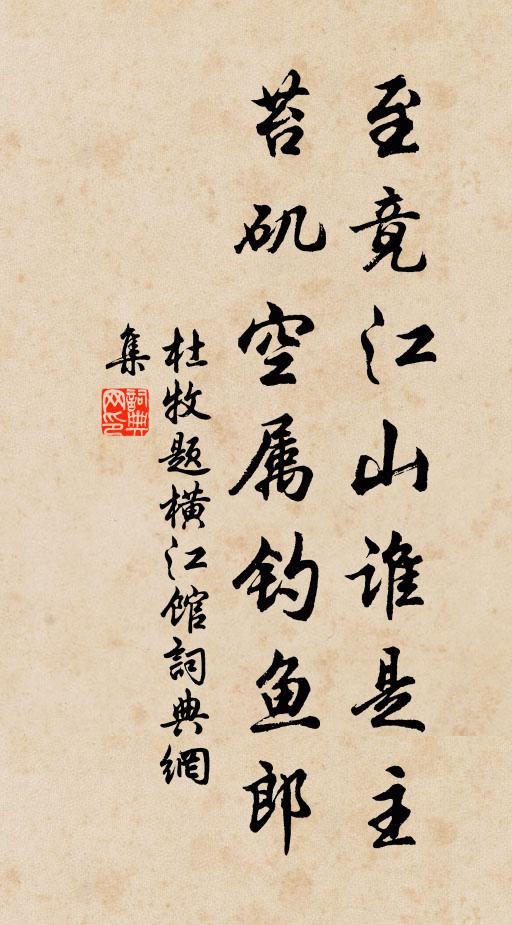 至竟江山谁是主
苔矶空属钓鱼郎
杜牧题横江馆詞典網
集
詞典
网印